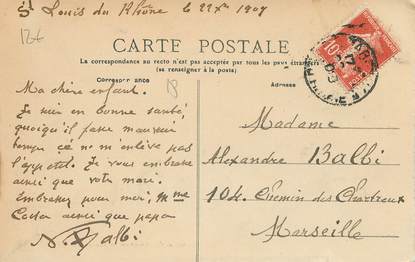 St Louis du Rhône le 22 Xbre 1907
12€
CARTE POSTALE
La correspondance au recto n'est pas acceptée par tous les pays étrangers
(se renseigner à la poste)
Correspondance
Adresse
Ma chère enfant.
Je suis en bonne santé,
quoiqu'il fasse mauvais
temps ça ne m'enlève pas
l'appétit. Je vous embrasse
ainsi que votre mari.
Embrassez pour moi, Mme
ainsi que papa
Balbi
Madame
Alexandre Balbi
104. Chemin des Chartreux
Marseille
10